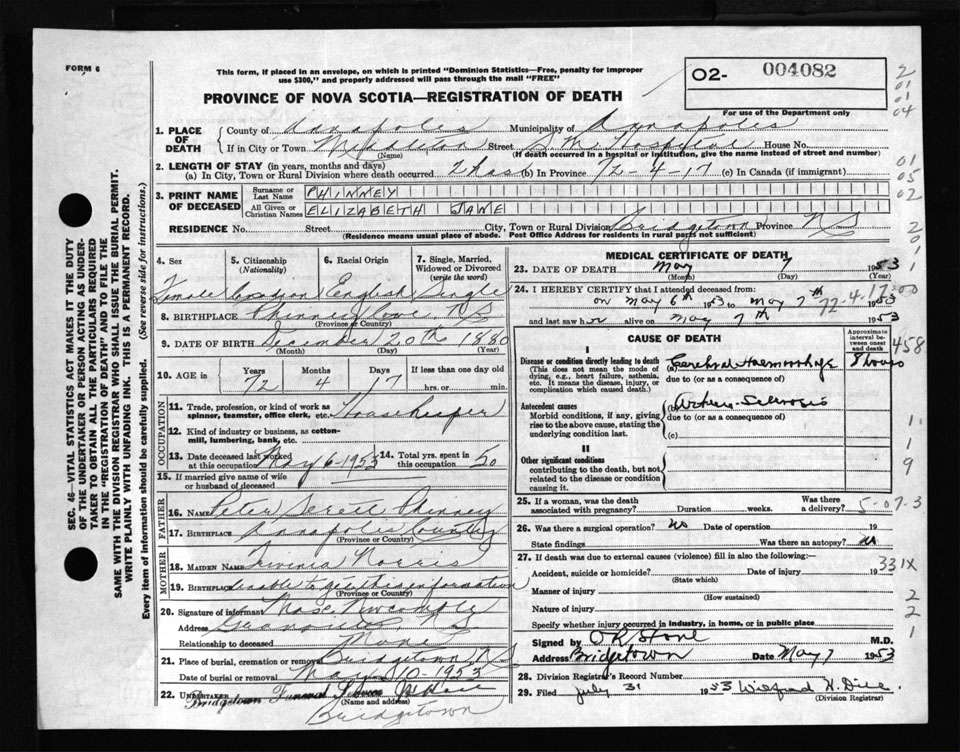 FORM 6
This form, if placed in an envelope, on which is printed "Dominion Statistics—Free, penalty for improper
use $300," and properly addressed will pass through the mail "FREE"
O2- 004082
PROVINCE OF NOVA SCOTIA—REGISTRATION OF DEATH
For use of the Department only
1. PLACE OF DEATH
County of Annapolis Municipality of Annapolis
If in City or Town Middleton Street S. M. Hospital House No.
(Name) (If death occurred in a hospital or institution, give the name instead of street and number)
2. LENGTH OF STAY (in years, months and days)
(a) In City, Town or Rural Division where death occurred 2 (b) In Province 72-4-17 (c) In Canada (if immigrant)
3. PRINT NAME OF DECEASED
Surname or Last Name PHINNEY
All Given or Christian Names ELIZABETH JANE
RESIDENCE No. Street City, Town or Rural Division Bridgetown Province NS
(Residence means usual place of abode. Post Office Address for residents in rural parts not sufficient)
4. Sex 5. Citizenship (Nationality) 6. Racial Origin 7. Single, Married, Widowed or Divorced (write the word)
Female Canadian English Single
8. BIRTHPLACE N.S.
(Province or Country)
9. DATE OF BIRTH December 20th 1880
(Month) (Day) (Year)
10. AGE in Years Months Days If less than one day old
72 4 17 hrs. or min.
OCCUPATION
11. Trade, profession, or kind of work as spinner, teamster, office clerk, etc. Housekeeper
12. Kind of industry or business, as cotton-mill, lumbering, bank, etc.
13. Date deceased last worked at this occupation May 6-1953 14. Total yrs. spent in this occupation 50
15. If married give name of wife or husband of deceased
FATHER
16. NAME Peter Phinney
17. BIRTHPLACE Annapolis County
(Province or Country)
MOTHER
18. MAIDEN NAME Norris
19. BIRTHPLACE Unable to get this information
(Province or Country)
20. Signature of informant Newcombe
Address N.S.
Relationship to deceased None
21. Place of burial, cremation or removal Bridgetown, NS
Date of burial or removal May 10-1953
22. UNDERTAKER Bridgetown Funeral Service
(Name and address)
Bridgetown
MEDICAL CERTIFICATE OF DEATH
23. DATE OF DEATH May 7 1953
(Month) (Day) (Year)
24. I HEREBY CERTIFY that I attended deceased from:
on May 6th 1953 to May 7th 1953
72-4-17-00
and last saw her alive on May 7th 1953
CAUSE OF DEATH
Approximate interval between onset and death
I
Disease or condition directly leading to death
(This does not mean the mode of dying, e.g., heart failure, asthenia, etc. It means the disease, injury, or complication which caused death.)
(a) Cerebral Haemorrhage 8 hours
due to (or as a consequence of)
Antecedent causes
Morbid conditions, if any, giving rise to the above cause, stating the underlying condition last.
(b) Arterio-Sclerosis
due to (or as a consequence of)
(c)
II
Other significant conditions
contributing to the death, but not related to the disease or condition causing it.
25. If a woman, was the death associated with pregnancy? Duration weeks. Was there a delivery?
26. Was there a surgical operation? No Date of operation 19
State findings Was there an autopsy? No
27. If death was due to external causes (violence) fill in also the following:
Accident, suicide or homicide? Date of injury 19
(State which)
Manner of injury
(How sustained)
Nature of injury
Specify whether injury occurred in industry, in home, or in public place
Signed by O R Stone M.D.
Address Bridgetown Date May 7 1953
28. Division Registrar's Record Number
29. Filed July 31 1953 Wilfred H. Dill
(Division Registrar)
2
01
01
04
01
05
02
20
1
458
1
1
9
5-07-3
331X
2
2
1
SEC. 46—VITAL STATISTICS ACT MAKES IT THE DUTY
OF THE UNDERTAKER OR PERSON ACTING AS UNDER-
TAKER TO OBTAIN ALL THE PARTICULARS REQUIRED
IN THE "REGISTRATION OF DEATH" AND TO FILE THE
SAME WITH THE DIVISION REGISTRAR WHO SHALL ISSUE THE BURIAL PERMIT.
WRITE PLAINLY WITH UNFADING INK. THIS IS A PERMANENT RECORD.
Every item of information should be carefully supplied. (See reverse side for instructions.)